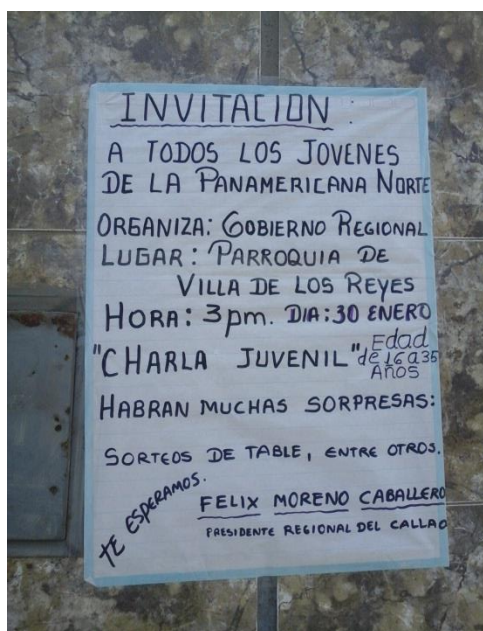 INVITACION:
A TODOS LOS JOVENES
DE LA PANAMERICANA NORTE
ORGANIZA: GOBIERNO REGIONAL
LUGAR: PARROQUIA DE
VILLA DE LOS REYES
HORA: 3pm. DIA: 30 ENERO
"CHARLA JUVENIL", Edad
de 16 a 35
Años
HABRAN MUCHAS SORPRESAS:
SORTEOS DE TABLE, ENTRE OTROS.
TE ESPERAMOS.
FELIX MORENO CABALLERO
PRESIDENTE REGIONAL DEL CALLAO